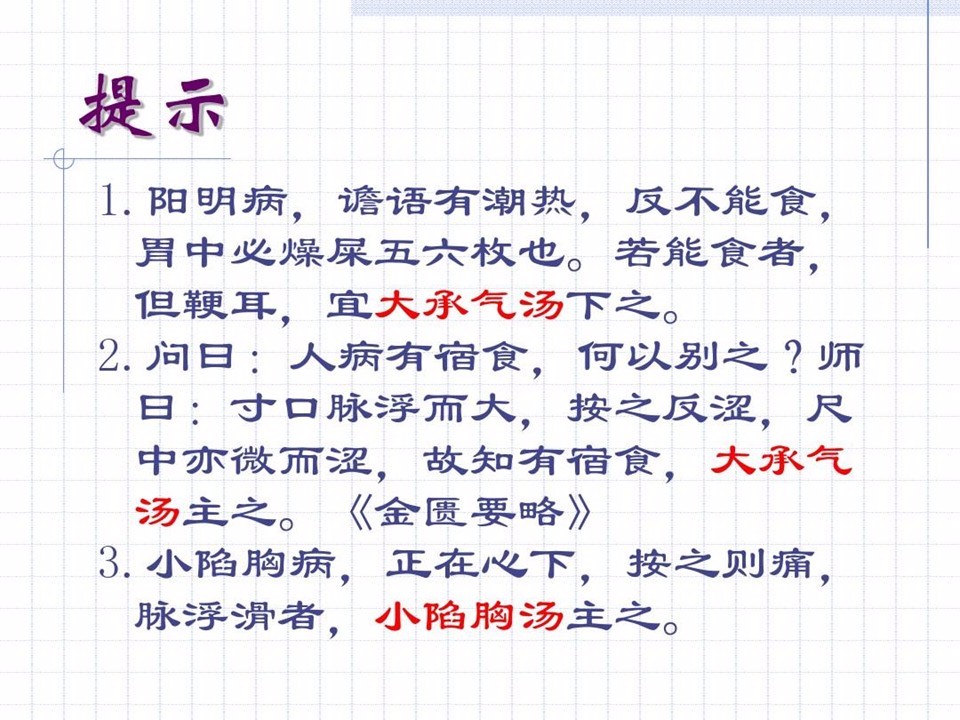 提示
1. 阳明病，谵语有潮热，反不能食，
胃中必燥屎五六枚也。若能食者，
但鞕耳，宜大承气汤下之。
2. 问曰：人病有宿食，何以别之？师
曰：寸口脉浮而大，按之反涩，尺
中亦微而涩，故知有宿食，大承气
汤主之。《金匮要略》
3. 小陷胸病，正在心下，按之则痛，
脉浮滑者，小陷胸汤主之。